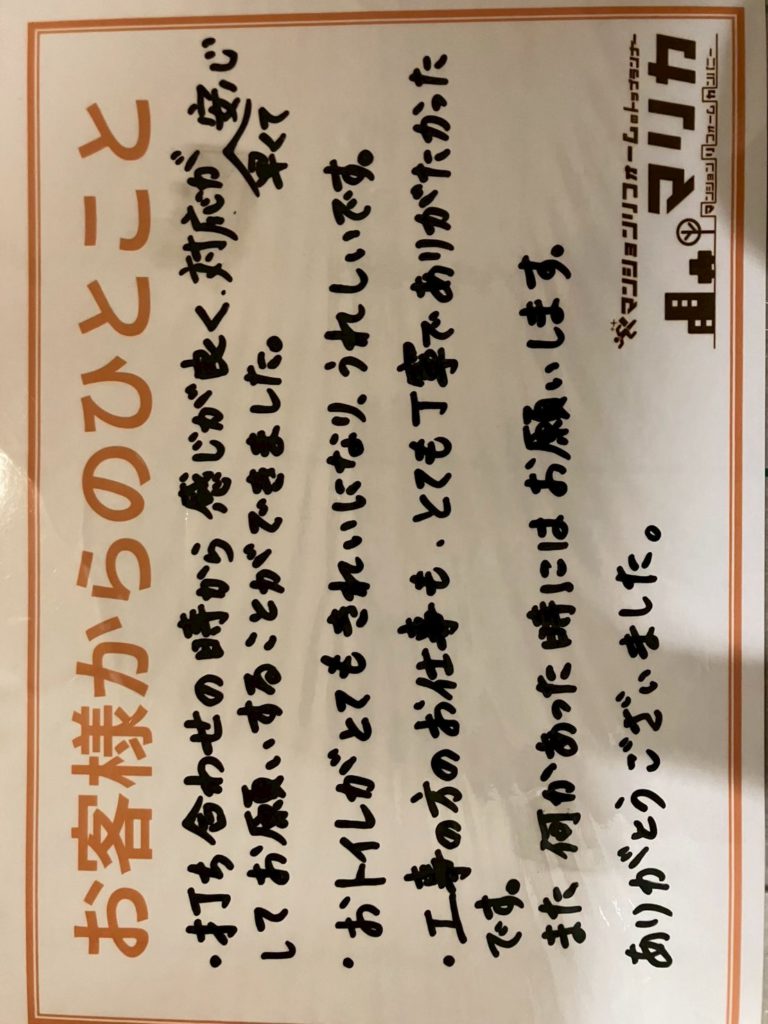 お客様からのひとこと
・打ち合わせの時から 感じが良く、対応が早くて 安心
してお願いすることができました。
・おトイレがとてもきれいになり、うれしいです。
・工事の方のお仕事も、とても丁寧でありがたかった
です。
また 何かあった時には お願いします。
ありがとうございました。
マンションリフォームのトップランナー
マリカ
マンションリフォームカンパニー